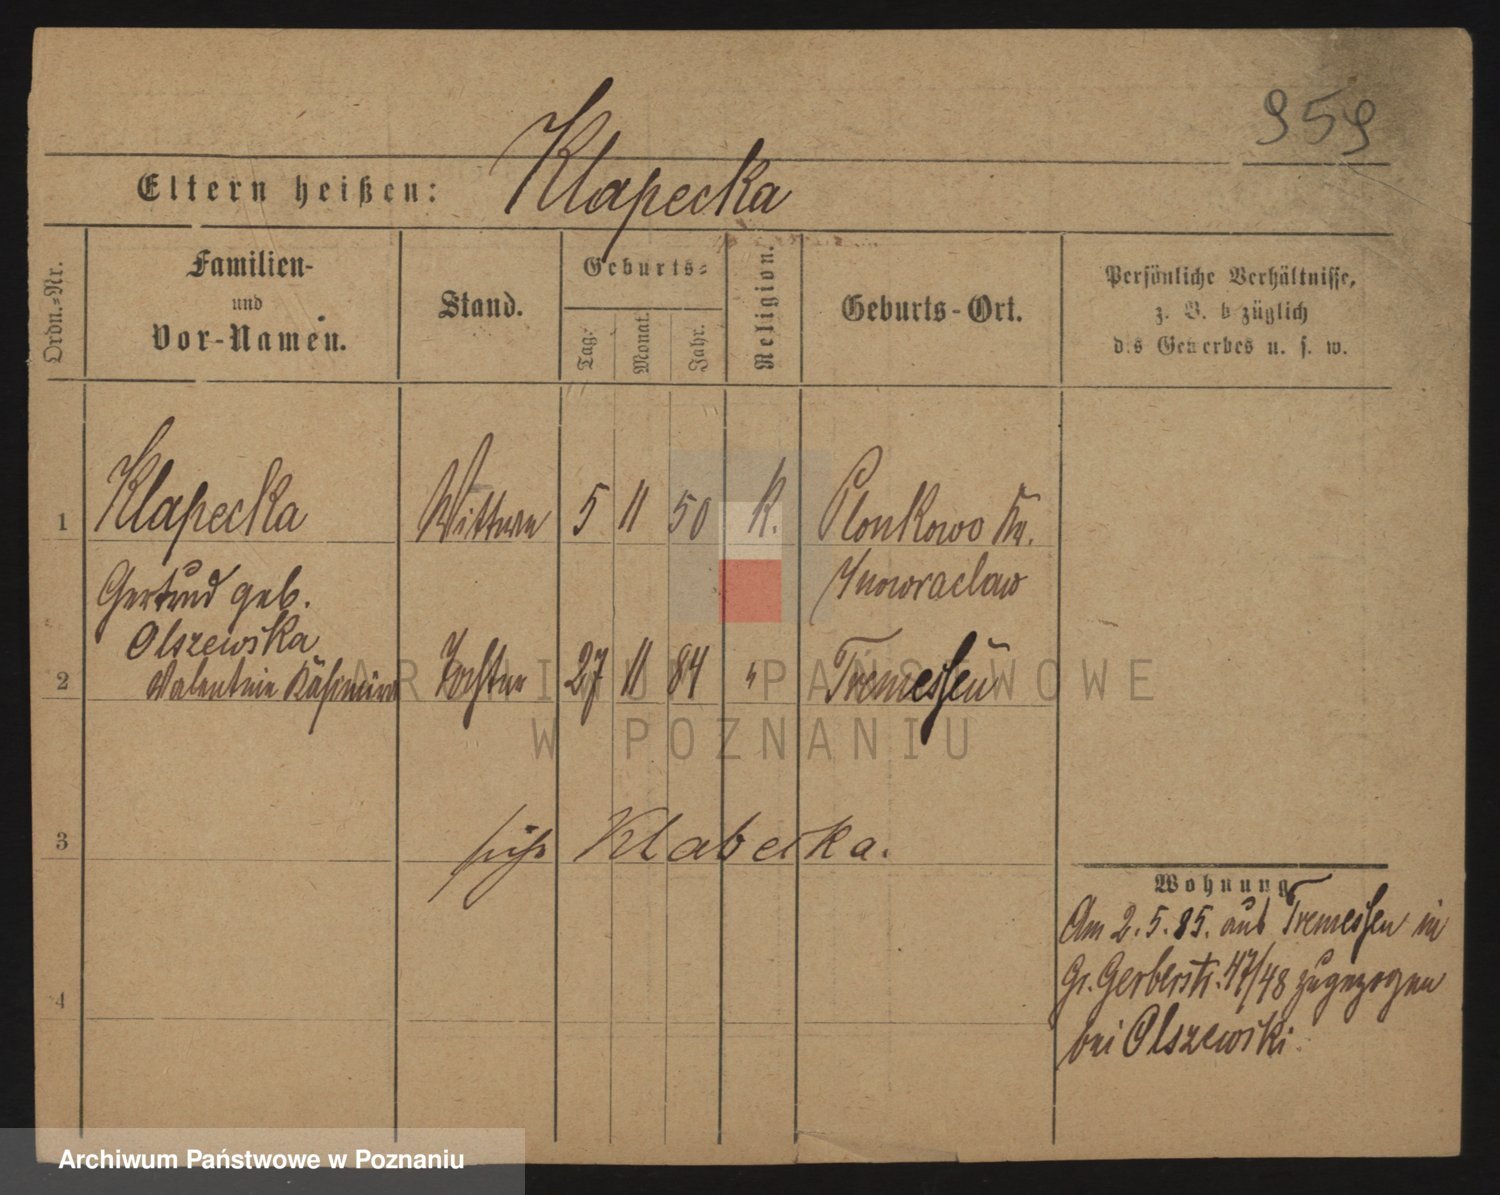 959
Eltern heißen: Klapecka
Ordn.-Nr.
Familien-
und
Vor-Namen.
Stand.
Geburts-
Tag.
Monat.
Jahr.
Religion.
Geburts-Ort.
Persönliche Verhältnisse,
z. B. bezüglich
des Gewerbes u. s. w.
1 Klapecka Wittwe 5 11 50 K. Plonkowo Kr.
Gertrud geb. Inowraclaw
Olszewska
2 Valentine Kasimira Tochter 27 11 84 " Tremessen
ARCHIWUM PAŃSTWOWE
W POZNANIU
3 siehe Klabecka.
4
Wohnung
Am 2.5.85. aus Tremessen in
Gr. Gerberstr. 47/48 zugezogen
bei Olszewski.
Archiwum Państwowe w Poznaniu